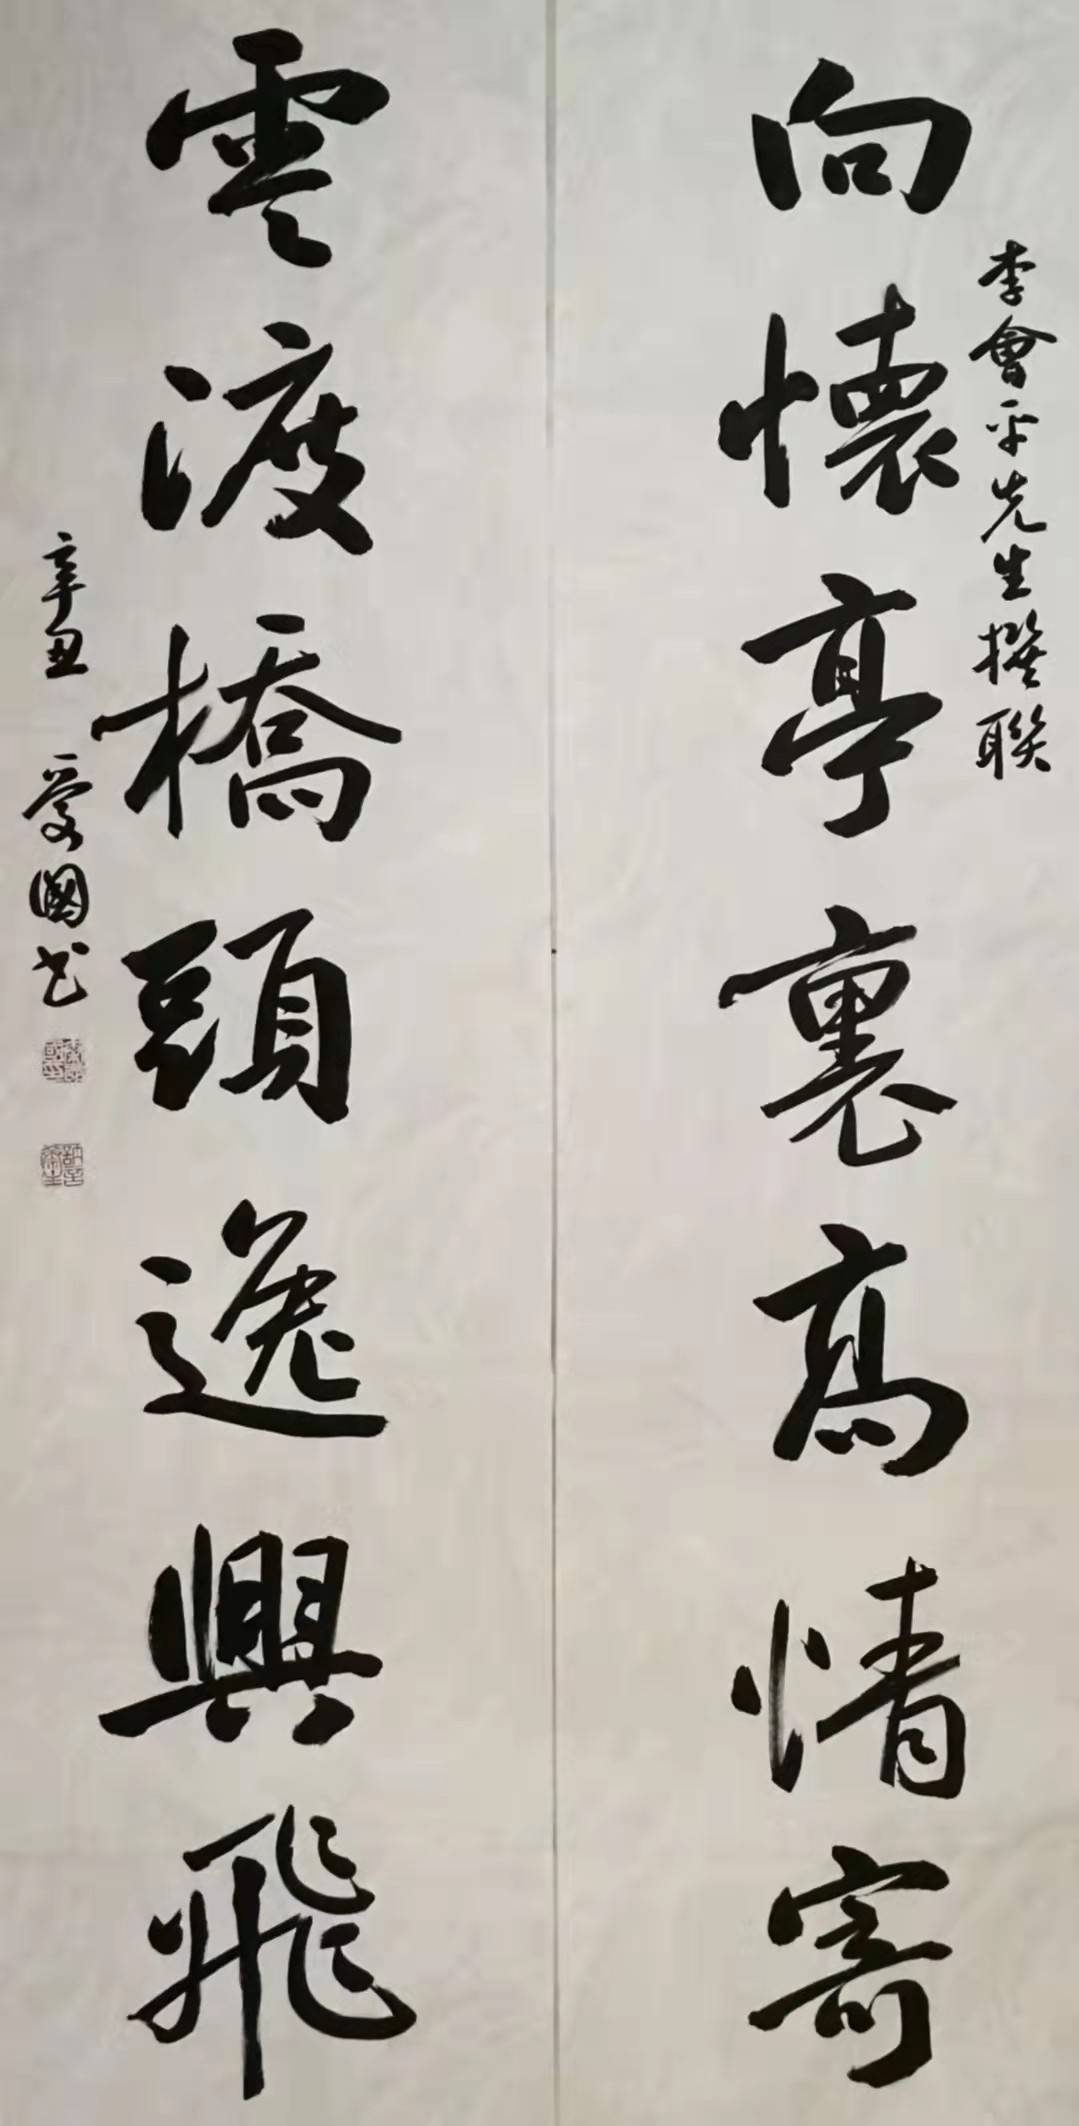 向懷亭裏高情寄
李會平先生撰聯
雲渡橋頭逸興飛
辛丑 愛國书